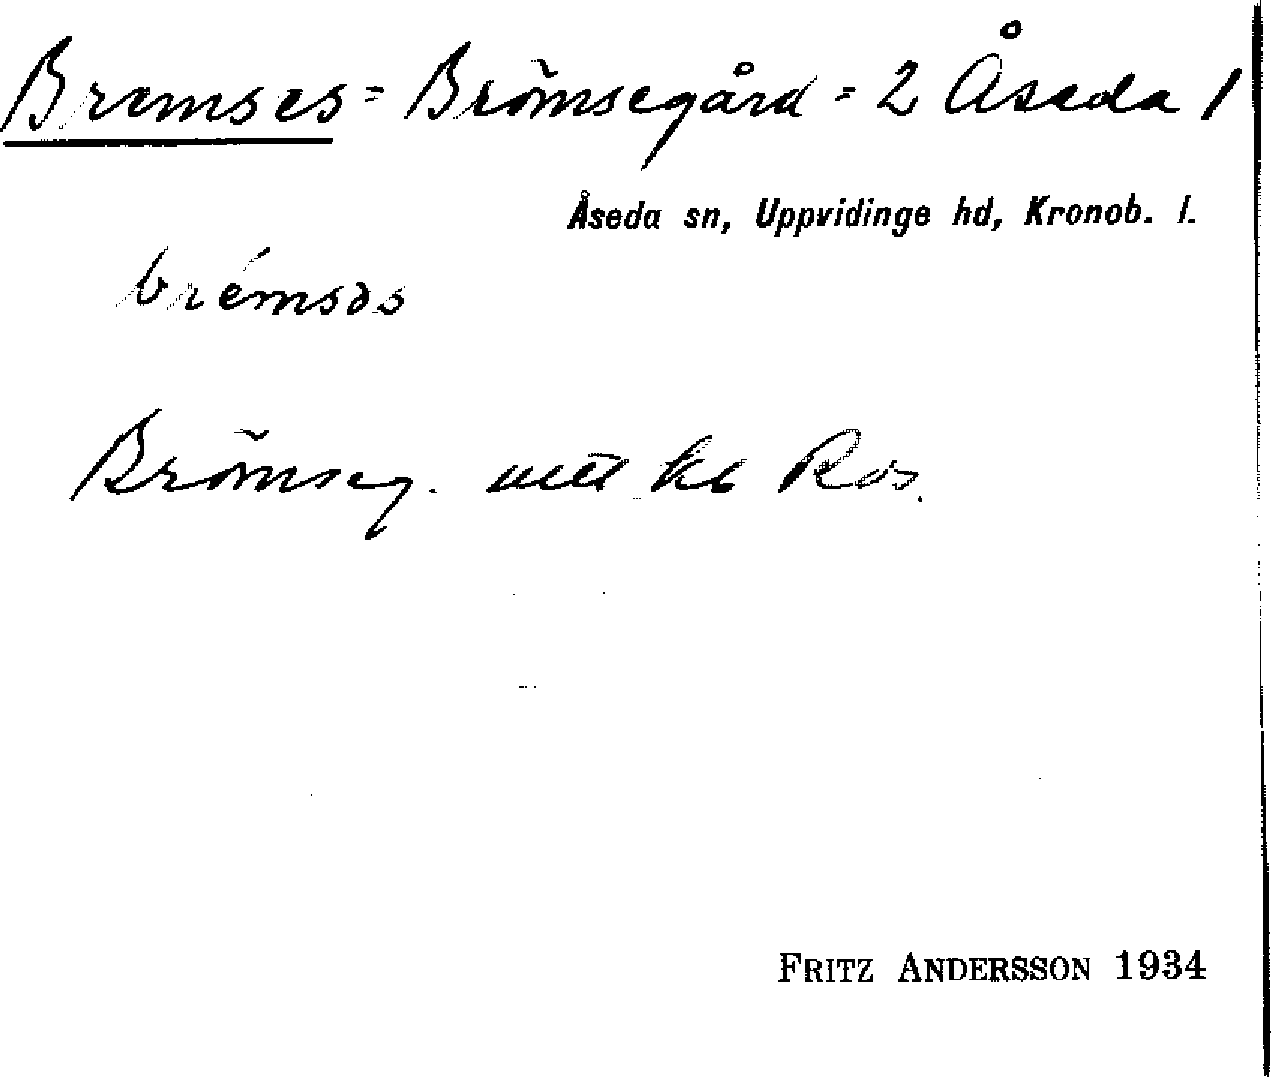 Bremses = Brömsegård = 2 Åseda 1
Åseda sn, Uppvidinge hd, Kronob. l.
brémsəs
Brömseg. Ros.
FRITZ ANDERSSON 1934